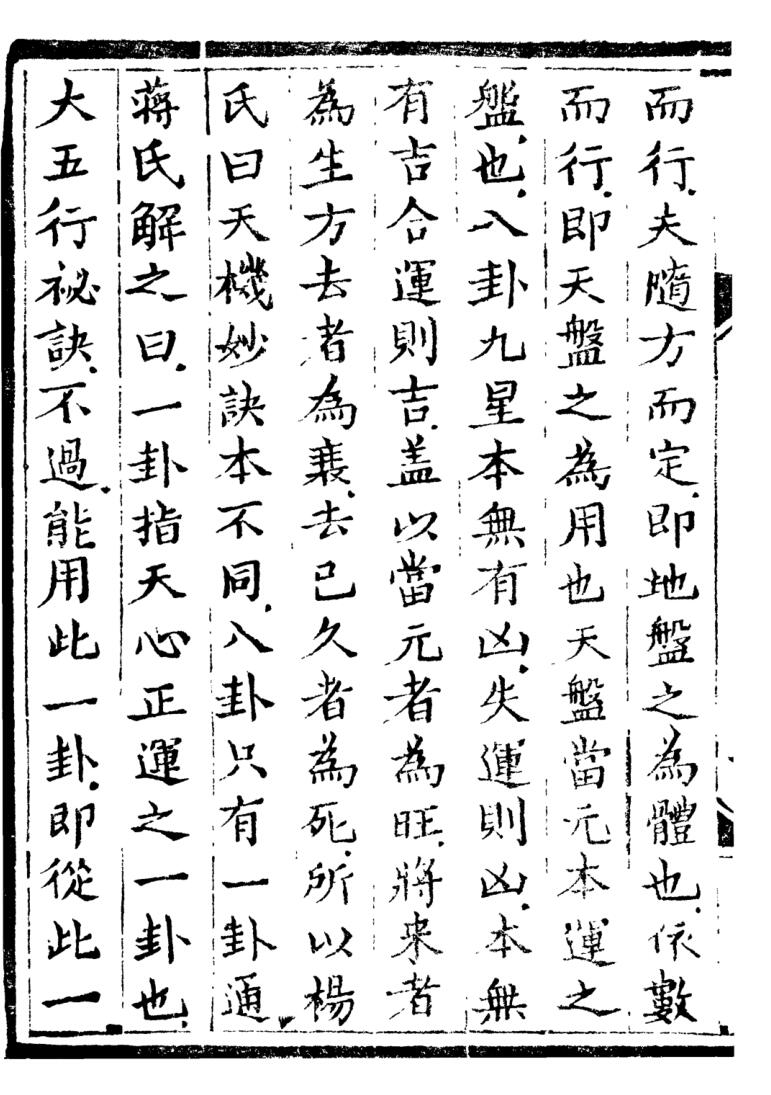 而行夫隨方而定即地盤之為體也依數
而行即天盤之為用也天盤當元本運之
盤也八卦九星本無有凶失運則凶本無
有吉合運則吉蓋以當元者為旺將来者
為生方去者為衰去已久者為死所以楊
氏曰天機妙訣本不同八卦只有一卦通
蔣氏解之曰一卦指天心正運之一卦也
大五行祕訣不過能用此一卦即從此一